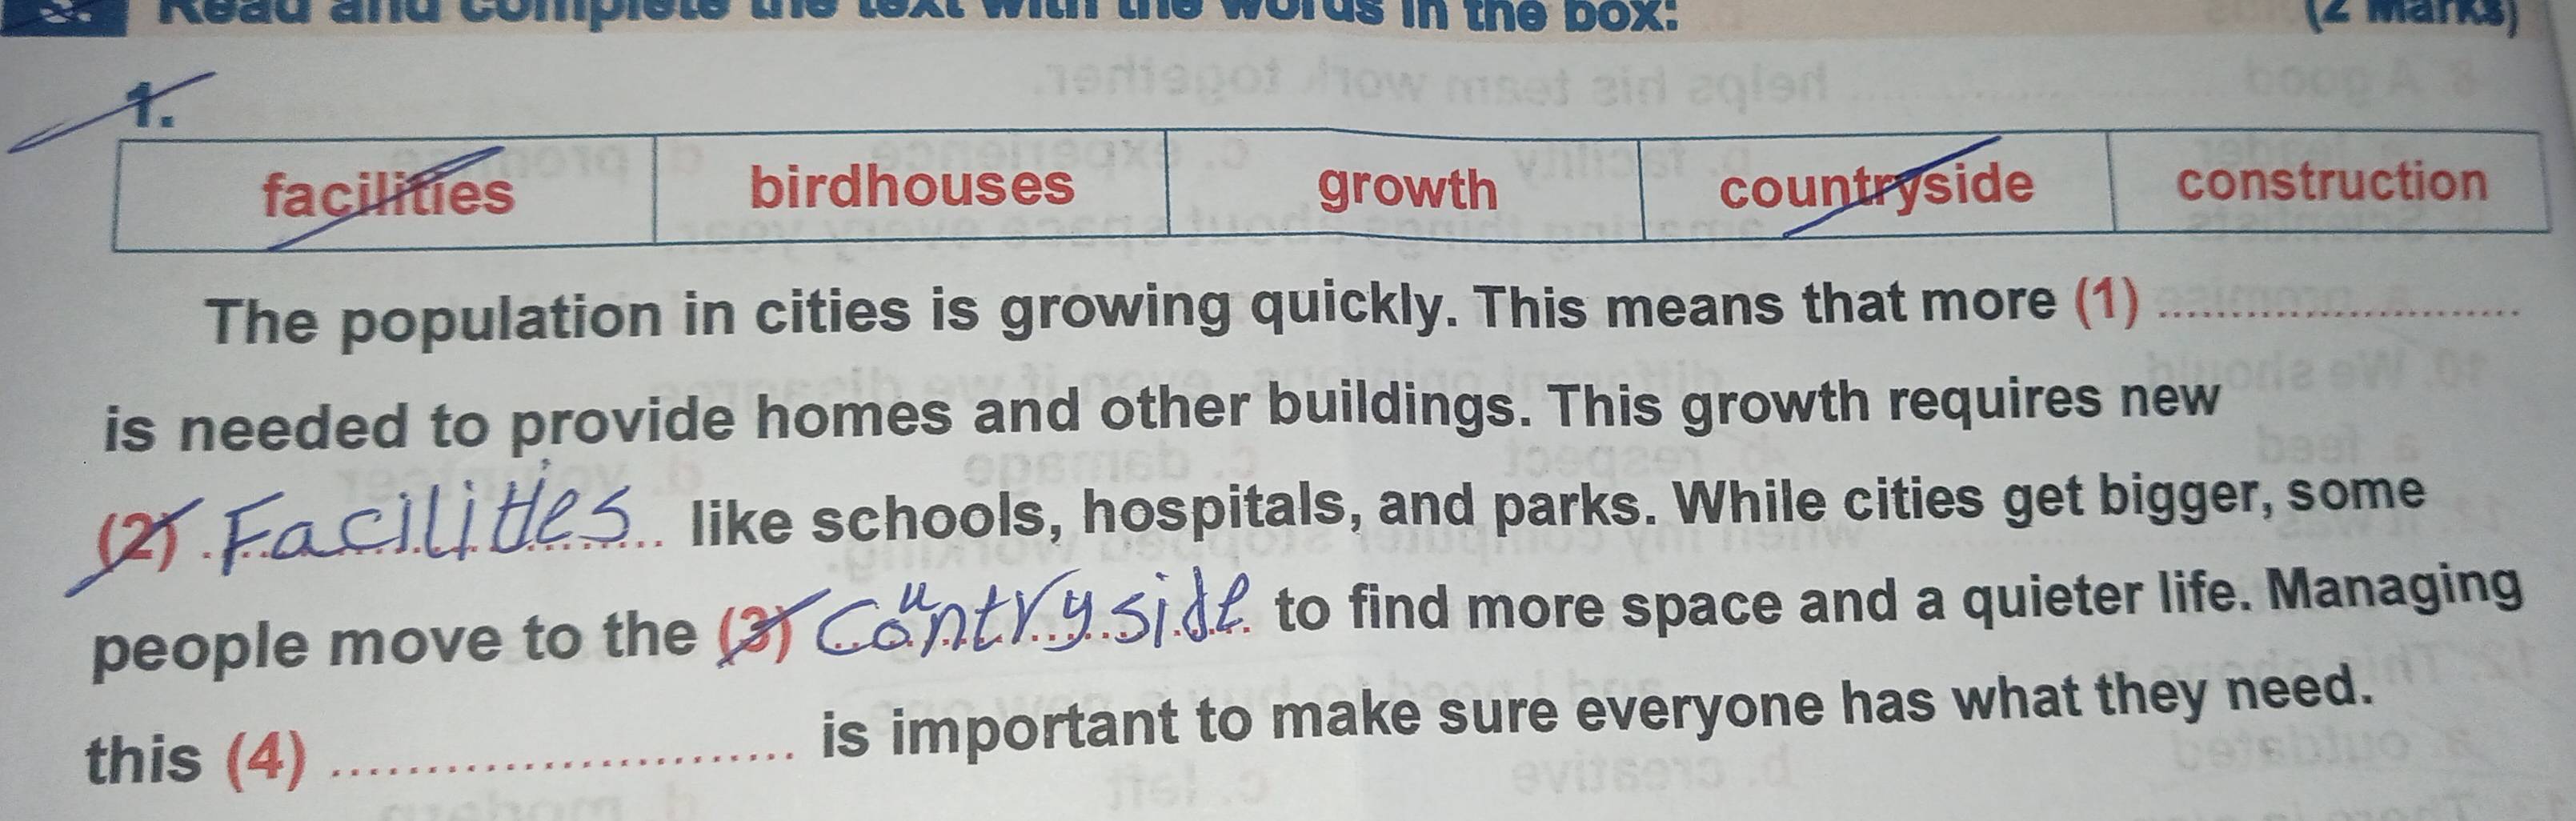 Read and complete the text with the words in the box:
(2 Marks)
1.
facilities birdhouses growth countryside construction
The population in cities is growing quickly. This means that more (1) ........................
is needed to provide homes and other buildings. This growth requires new
(2) Facilities like schools, hospitals, and parks. While cities get bigger, some
people move to the (3) Countryside to find more space and a quieter life. Managing
this (4) ........................ is important to make sure everyone has what they need.